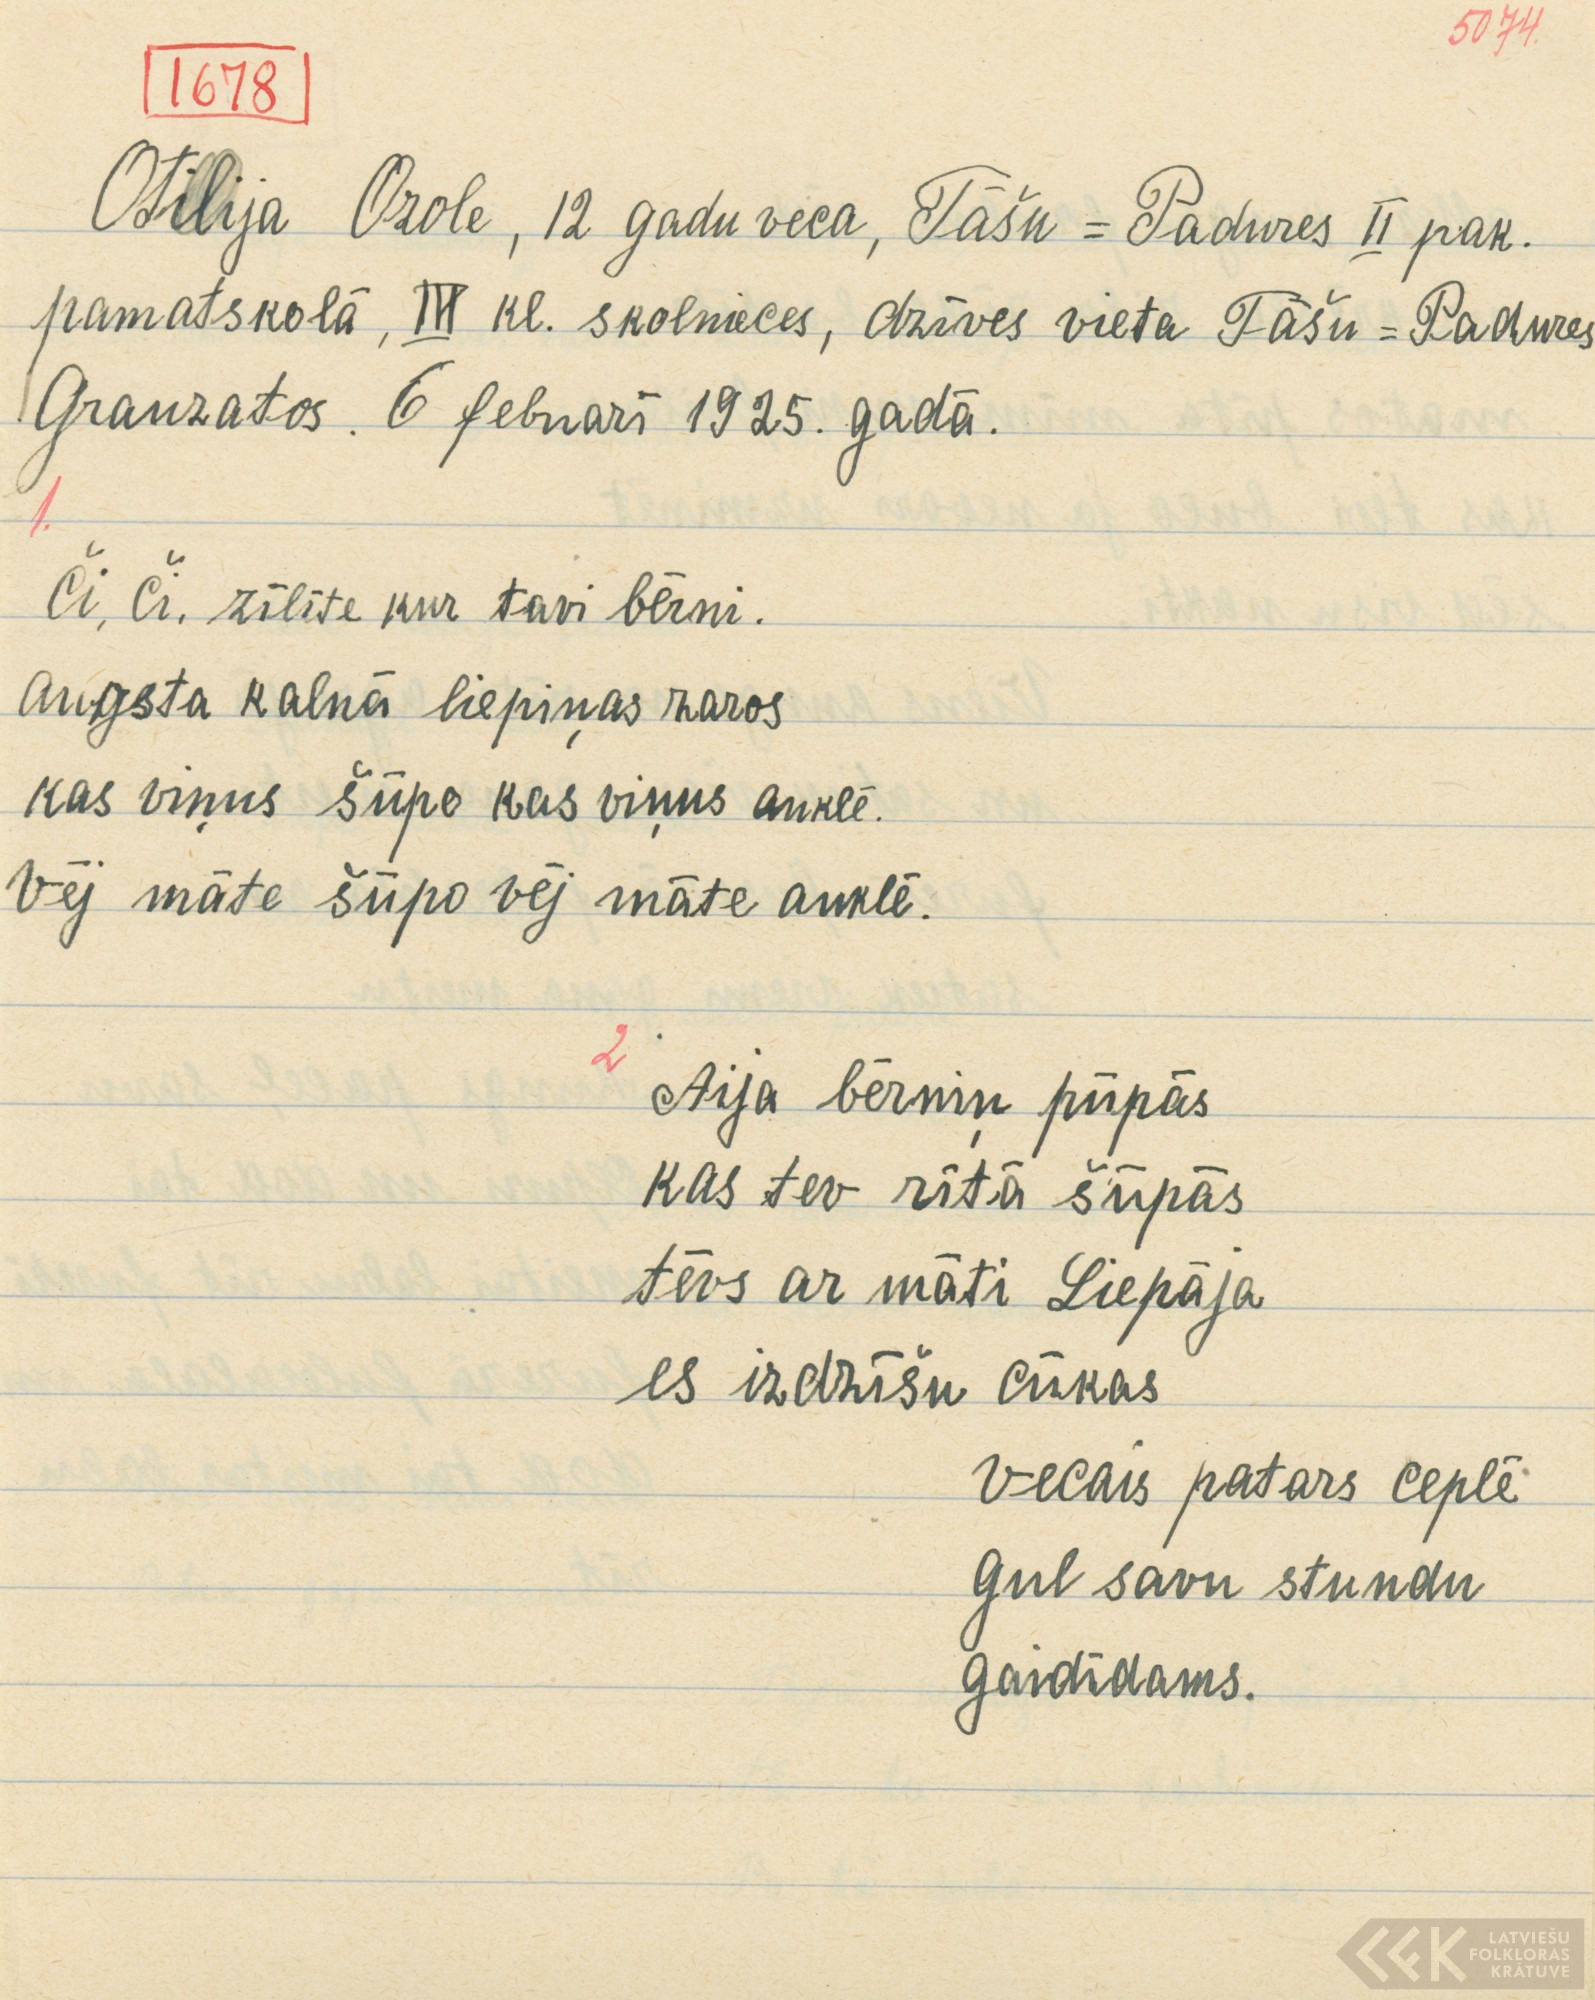 5074.
1678
Otilija Ozole, 12 gadu veca, Tāšu = Padures II pak.
pamatskolā, III kl. skolnieces, dzīves vieta Tāšu = Padures
Grauzatos. 6 februarī 1925. gadā.
1.
Či, Či, zīlīte kur tavi bērni.
augsta kalnā liepiņas zaros
kas viņus šūpo kas viņus auklē.
Vēj māte šūpo vēj māte auklē.
2
Aija bērniņ pūpās
kas tev rītā šūpās
tēvs ar māti Liepāja
es izdzīšu cūkas
vecais patars ceplē
gul savu stundu
gaidīdams.
LATVIEŠU
FOLKLORAS
KRĀTUVE